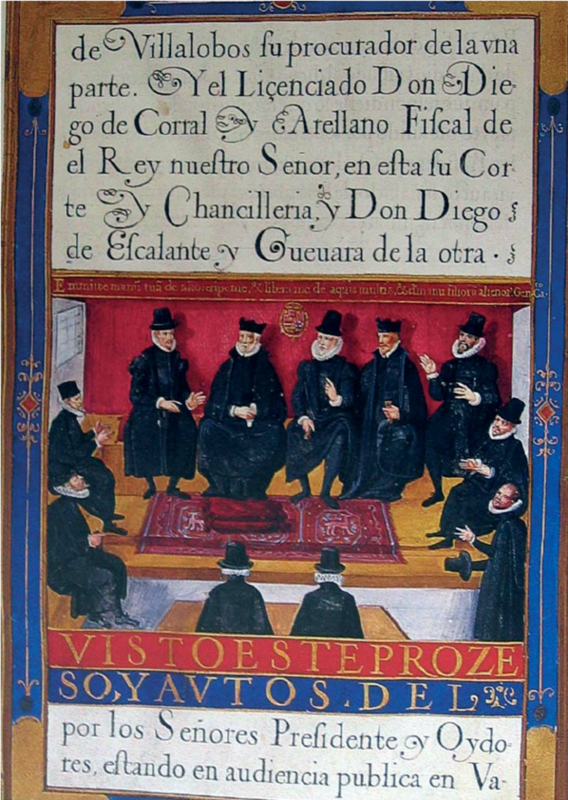 de Villalobos ſu procurador de la vna
parte. Y el Liçenciado Don Die-
go de Corral y Arellano Fiſcal de
el Rey nueſtro Señor, en eſta ſu Cor-
te y Chancilleria, y Don Diego
de Eſcalante y Gueuara de la otra.
Emmitte manũ tuã de alto, eripe me, & libera me de aquis multis, & de
VISTO ESTE PROZE
SO, Y AVTOS. DEL
por los Señores Preſidente y Oydo-
res, eſtando en audiencia publica en Va-